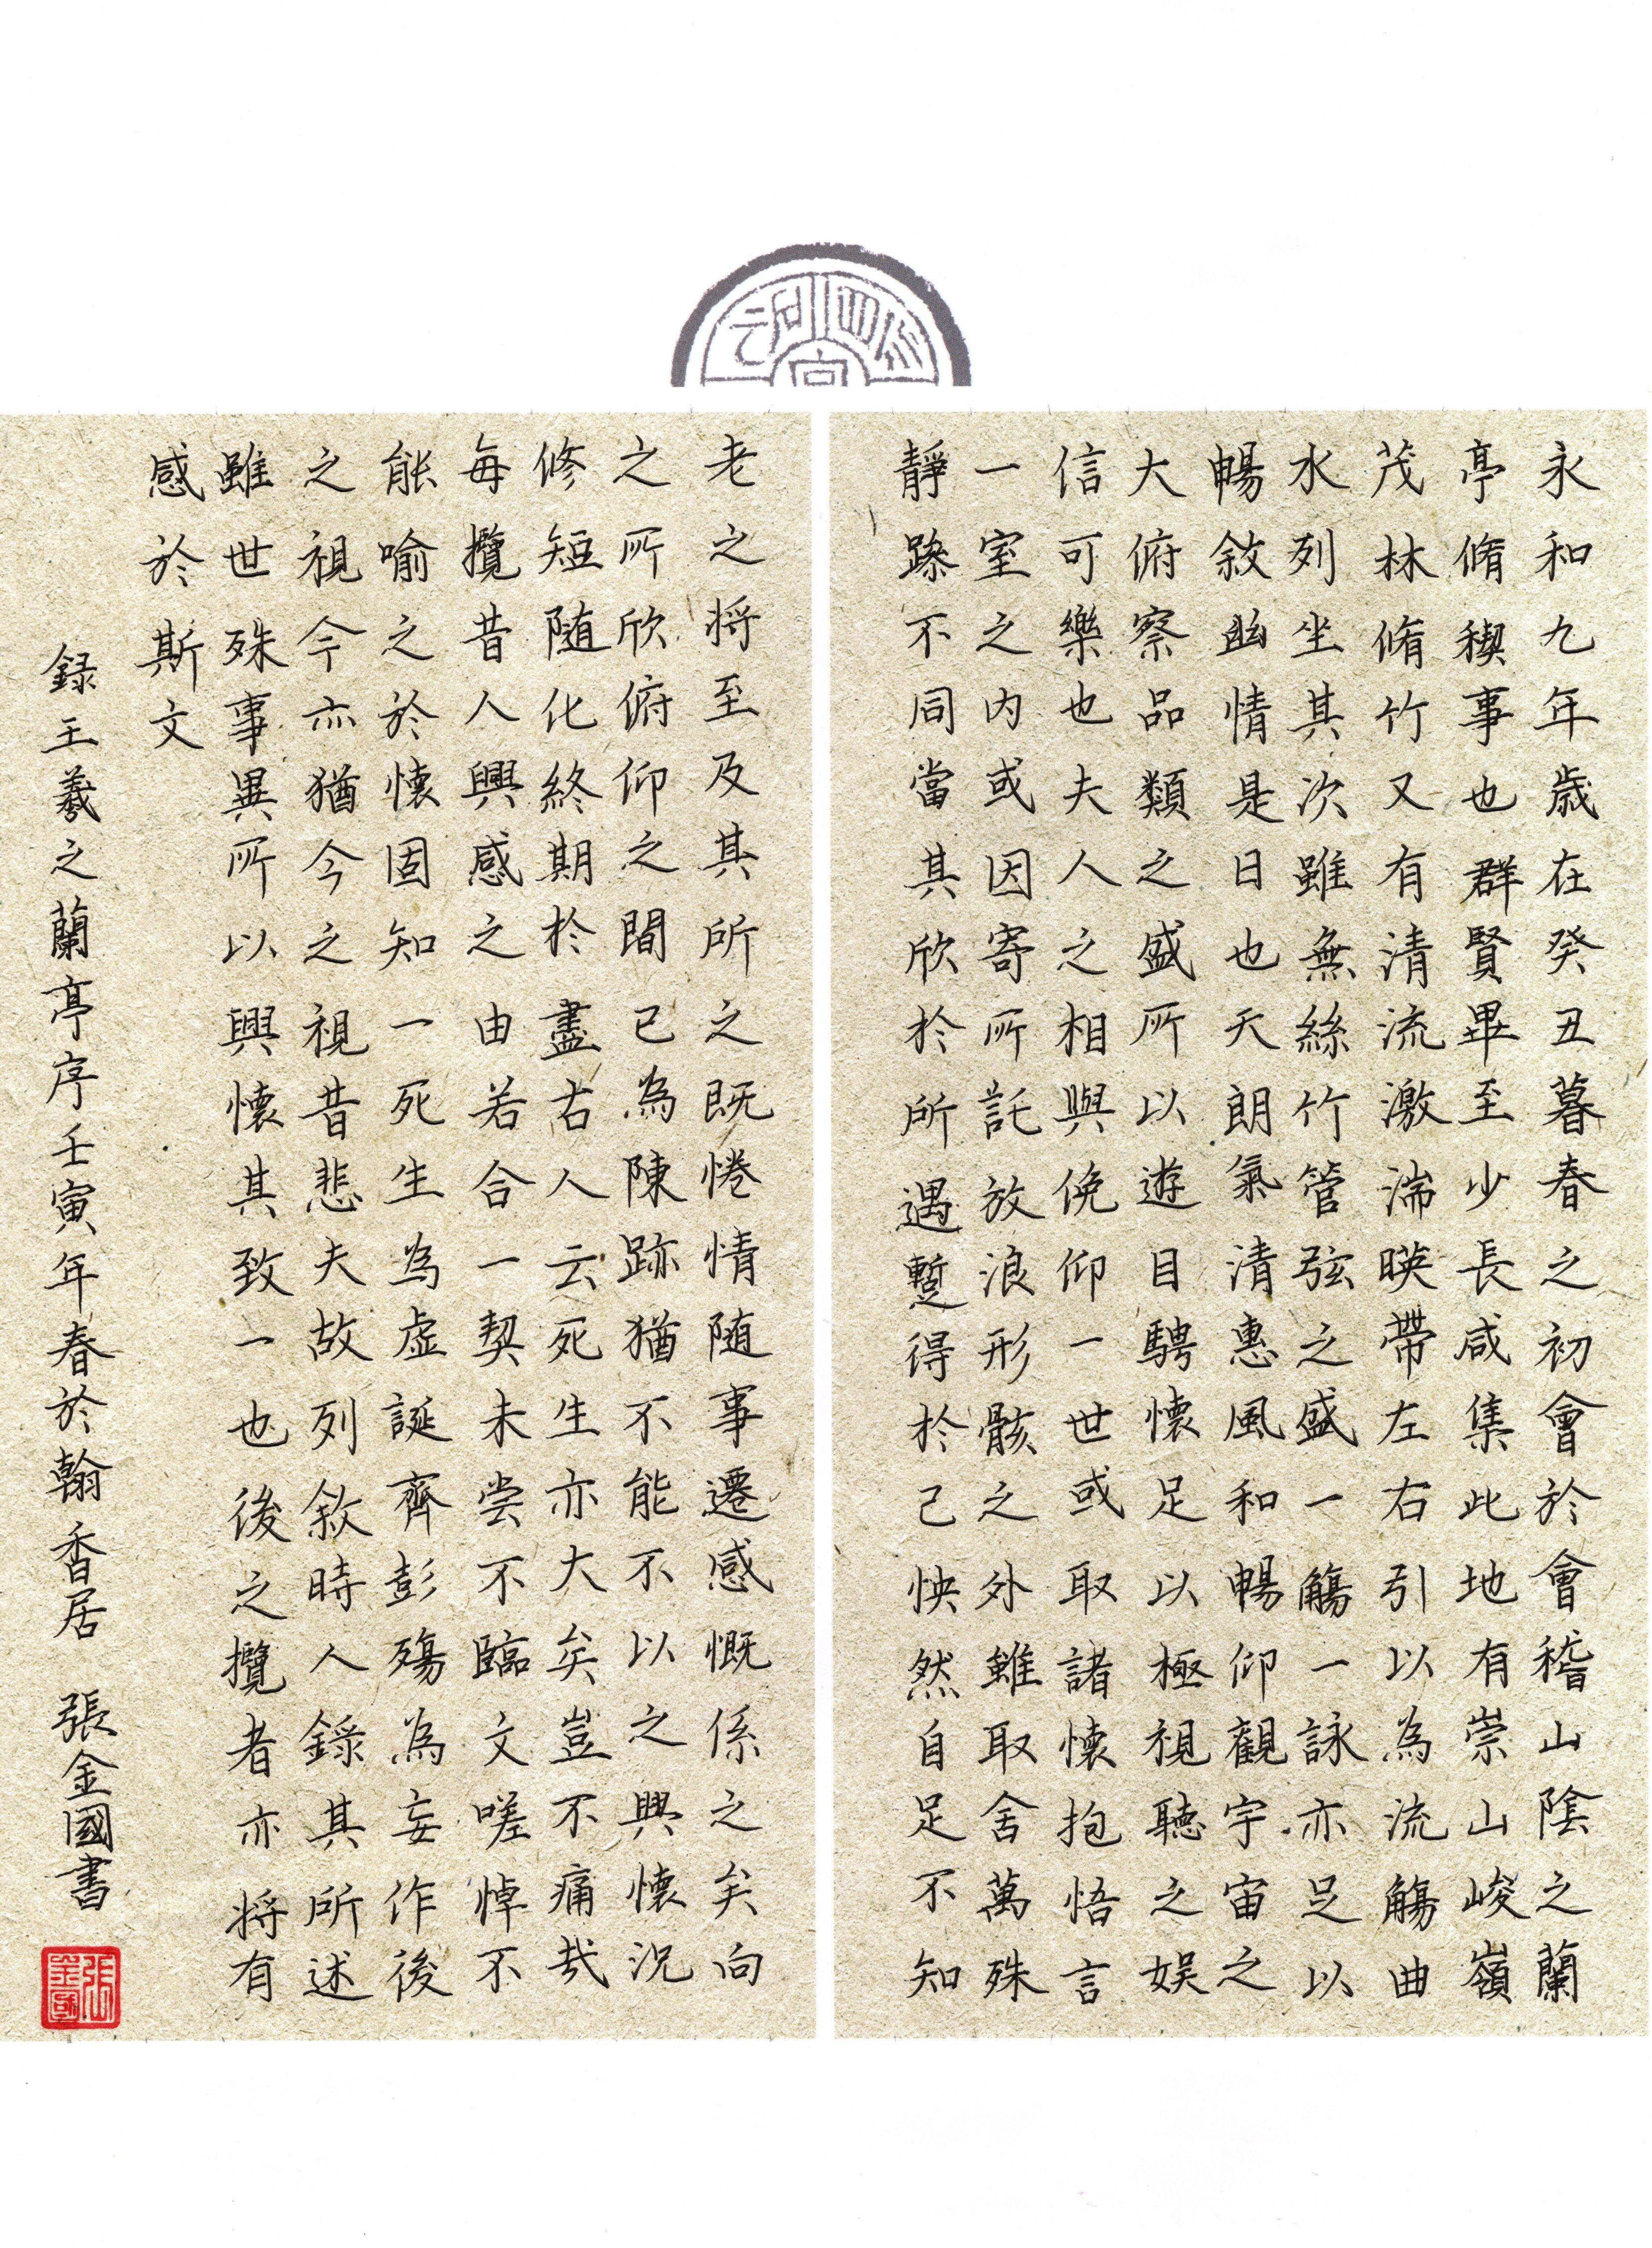 永和九年歲在癸丑暮春之初會於會稽山陰之蘭
亭脩稧事也群賢畢至少長咸集此地有崇山峻嶺
茂林脩竹又有清流激湍暎帶左右引以為流觴曲
水列坐其次雖無絲竹管弦之盛一觴一詠亦足以
暢敘幽情是日也天朗氣清惠風和暢仰觀宇宙之
大俯察品類之盛所以遊目騁懷足以極視聽之娛
信可樂也夫人之相與俛仰一世或取諸懷抱悟言
一室之內或因寄所託放浪形骸之外雖取舍萬殊
靜躁不同當其欣於所遇蹔得於己怏然自足不知
老之將至及其所之既惓情隨事遷感慨係之矣向
之所欣俯仰之間已為陳跡猶不能不以之興懷況
修短隨化終期於盡古人云死生亦大矣豈不痛哉
每攬昔人興感之由若合一契未嘗不臨文嗟悼不
能喻之於懷固知一死生為虛誕齊彭殤為妄作後
之視今亦猶今之視昔悲夫故列敘時人錄其所述
雖世殊事異所以興懷其致一也後之攬者亦將有
感於斯文
録王羲之蘭亭序壬寅年春於翰香居 張金國書
張金國